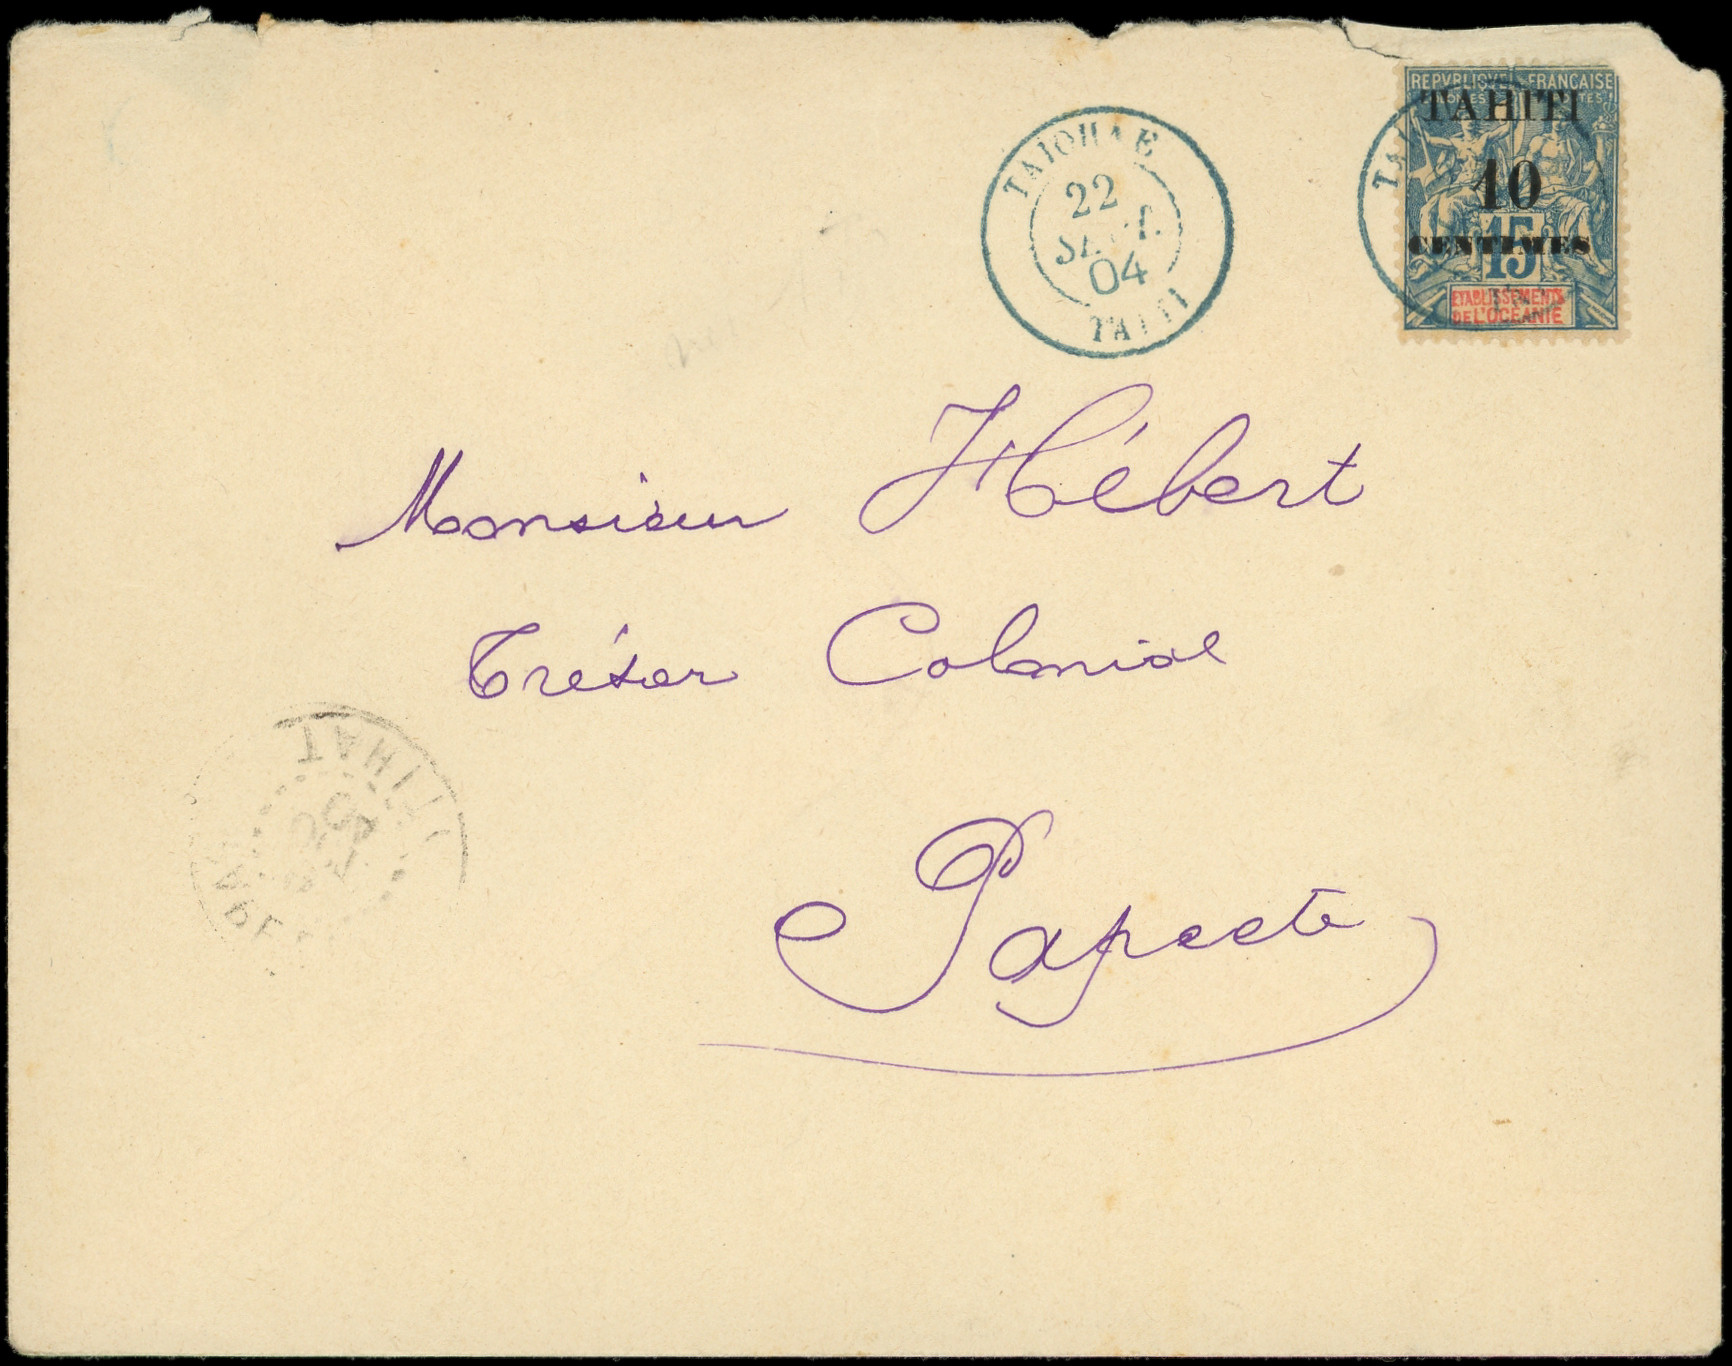 TAIOHAE
22
SEPT.
04
TAITI
REPVBLIQVE FRANÇAISE
TAHITI
10
CENTIMES
15
ETABLISSEMENTS
DE L'OCÉANIE
Monsieur Hébert
Trésor Colonial
Papeete
TAHITI